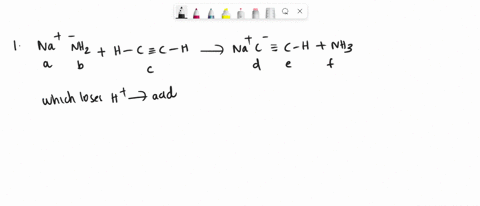 1. Na⁺ ⁻NH₂ + H-C≡C-H ⟶ Na⁺ C⁻≡C-H + NH₃
a b c d e f
which loses H⁺ ⟶ acid